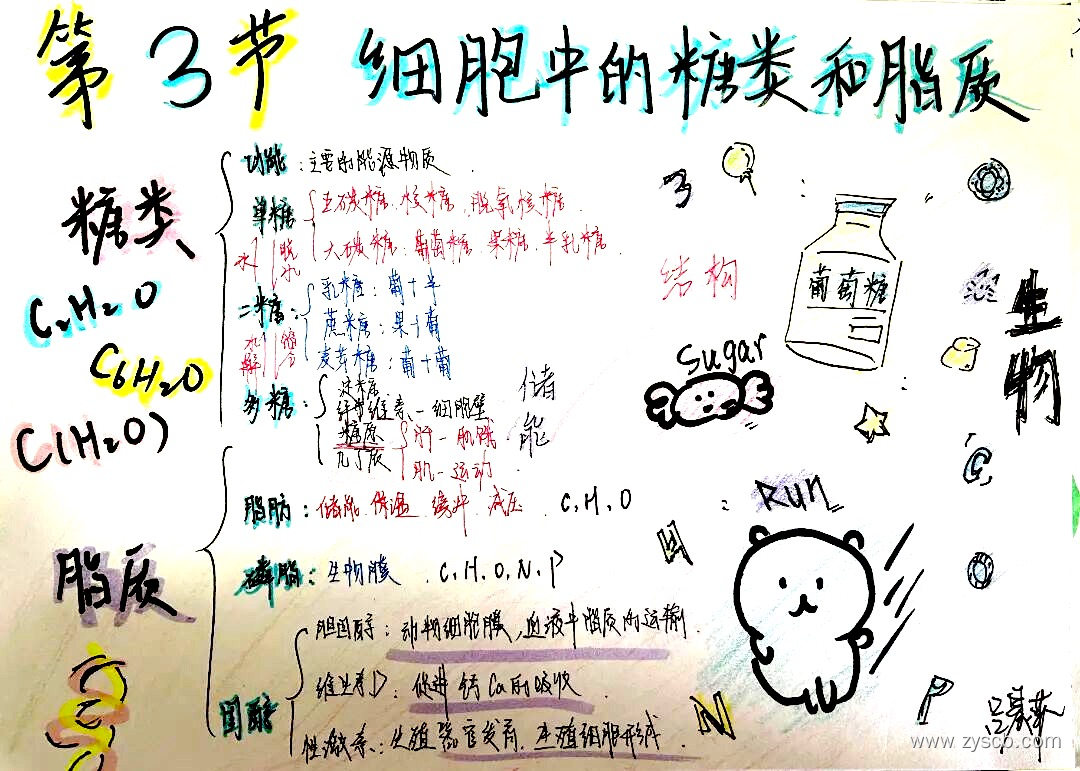 第3节 细胞中的糖类和脂质
糖类
C₂H₂O
C6H₂O
C(H₂O)
功能：主要的能源物质
单糖
五碳糖：核糖、脱氧核糖
六碳糖：葡萄糖 果糖 半乳糖
水
脱水
二糖：
乳糖：葡+半
蔗糖：果+葡
麦芽糖：葡+葡
水解
缩合
多糖：
淀粉
纤维素、—细胞壁
糖原
肝—血糖
肌—运动
几丁质
储能
脂质
脂肪：储能 保温 缓冲 减压 C,H,O
磷脂：生物膜 C,H,O,N,P
固醇
胆固醇：动物细胞膜,血液中脂质的运输
维生素D：促进钙Ca的吸收
性激素：生殖器官发育，生殖细胞形成
结构
葡萄糖
Sugar
Run
生物
H
N
P
www.zysco.com